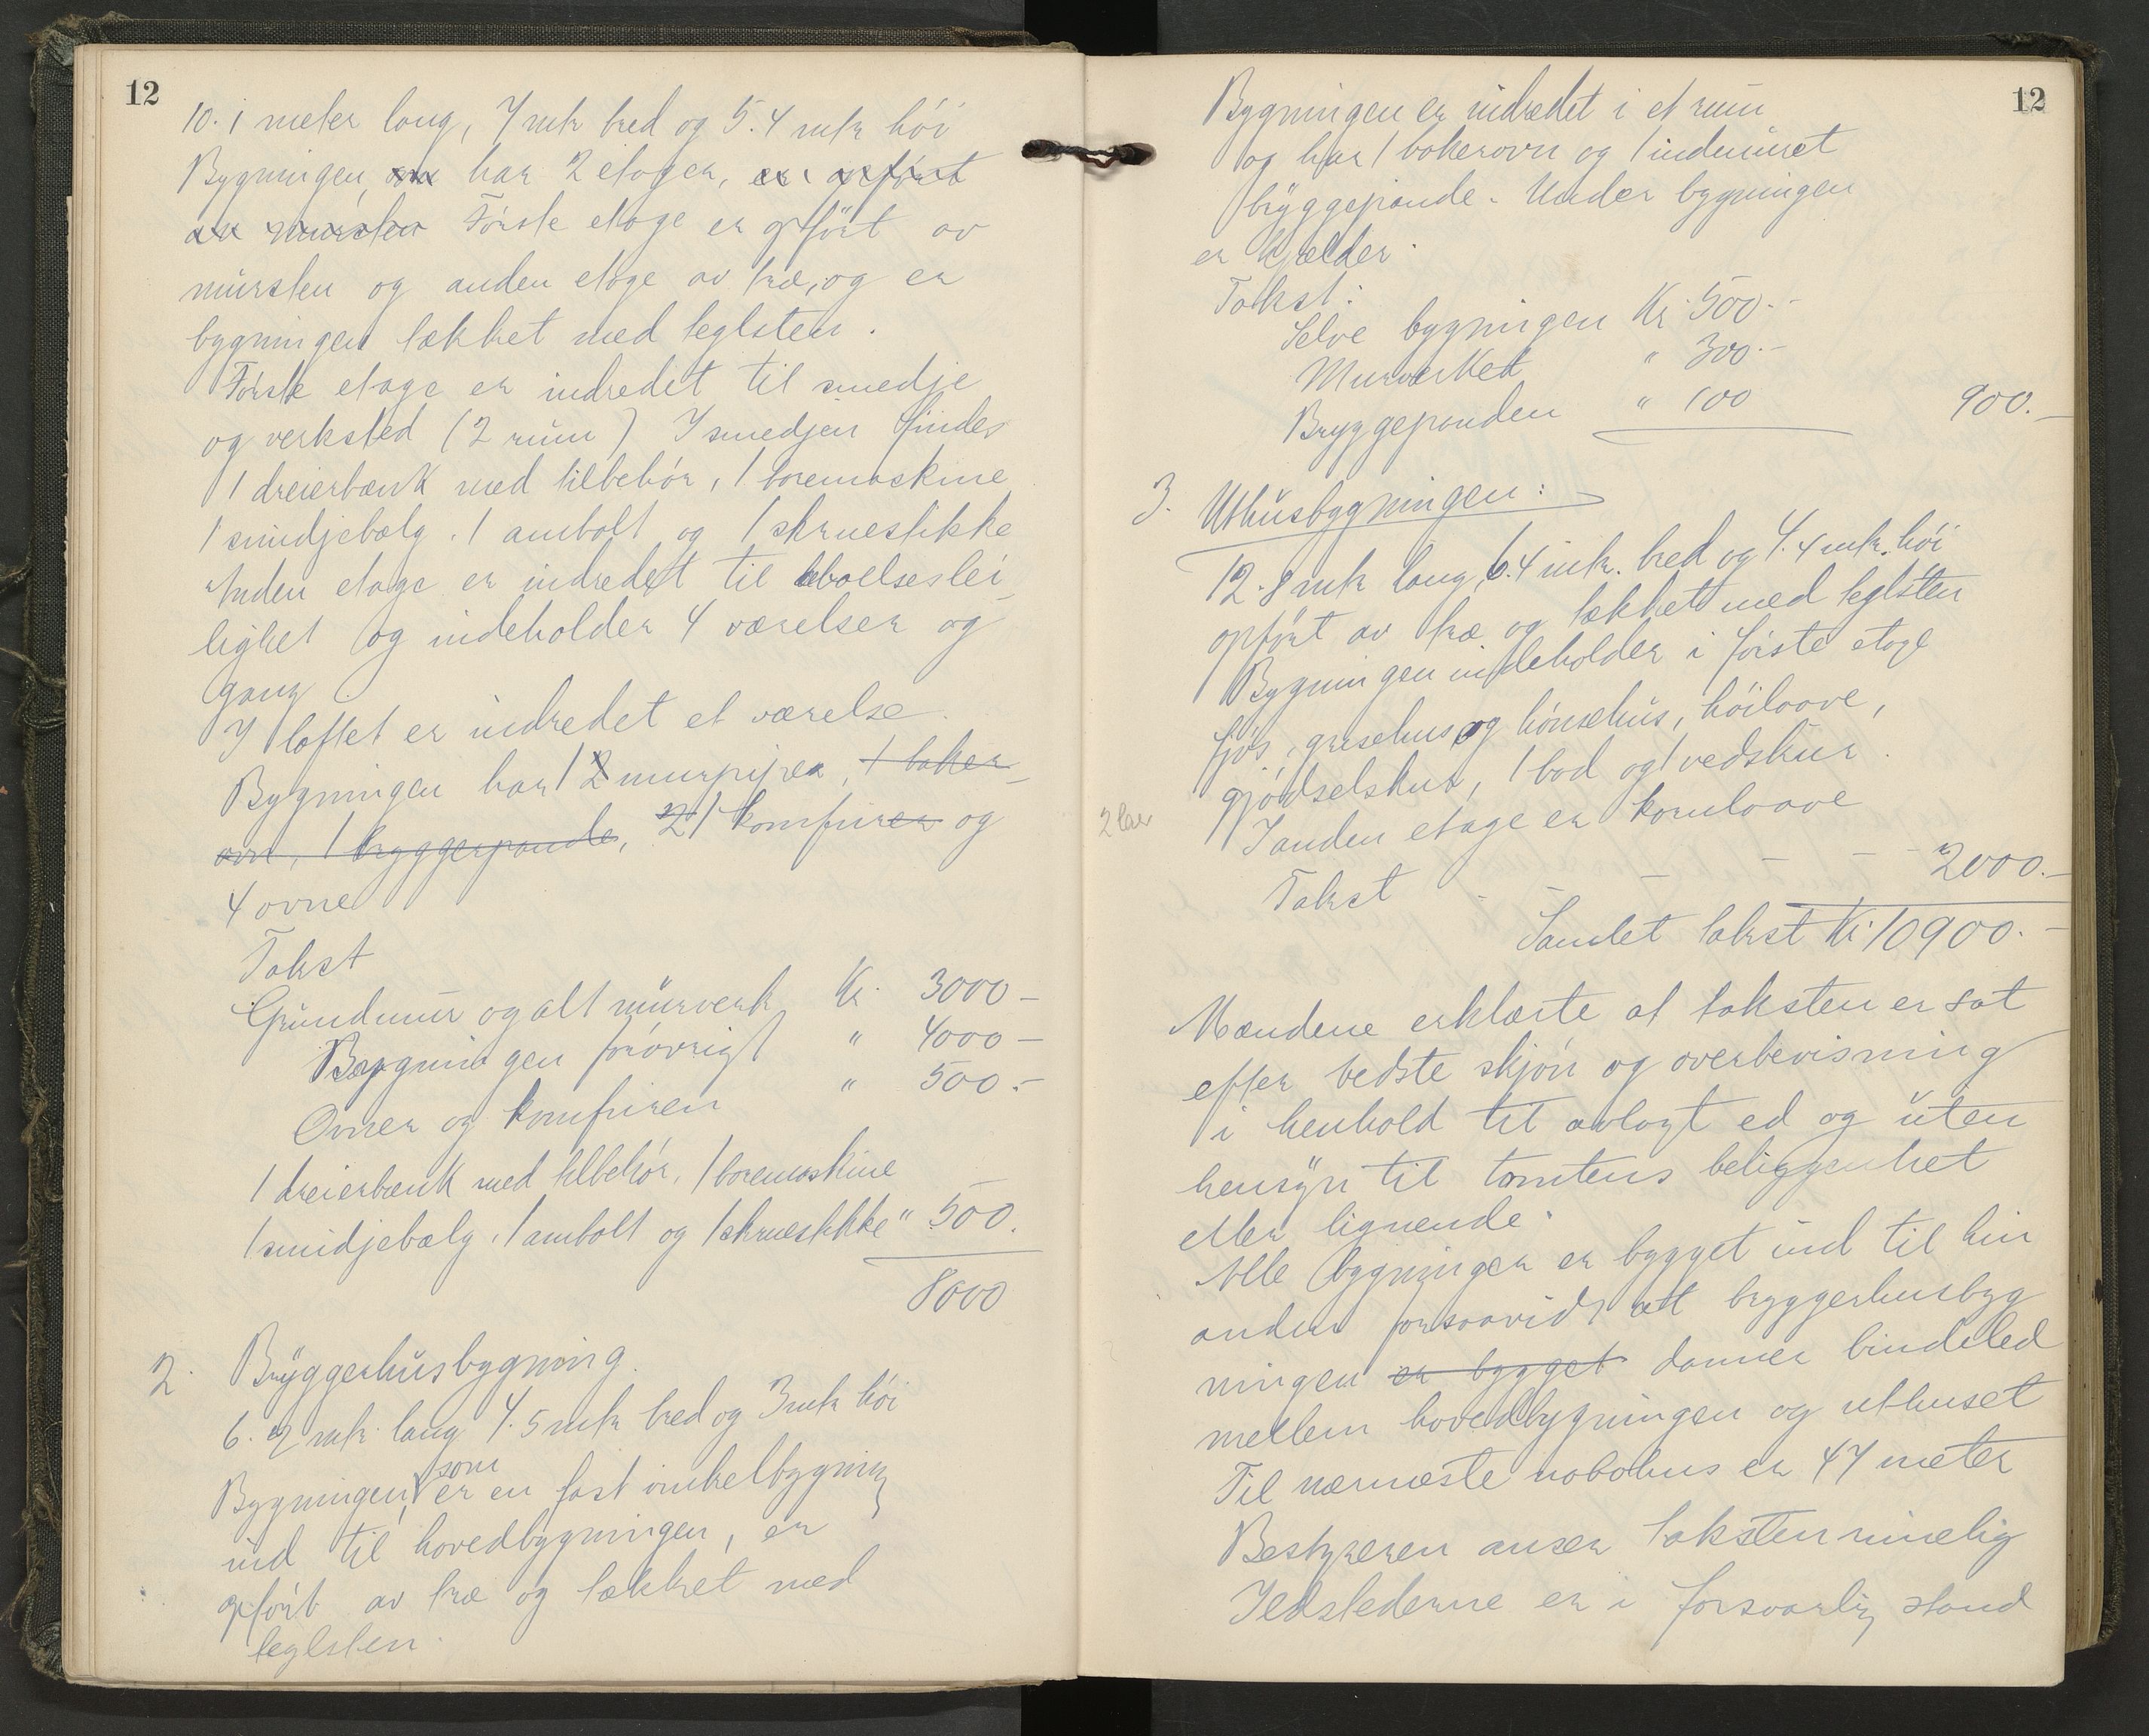 12
10.1 meter lang, 7 mtr bred og 5.4 mtr høi
Bygningen, som har 2 etager, er opført
av mursten Første etage er opført av
mursten og anden etage av træ, og er
bygningen tækket med teglsten.
Første etage er indredet til smedje
og verksted (2 rum) I smedjen findes
1 dreierbænk med tilbehør, 1 boremaskine
1 smidjebælg. 1 ambolt og 1 skruestikke
Anden etage er indredet til beboelseslei-
lighet og indeholder 4 værelser og
gang.
I loftet er indredet et værelse.
Bygningen har 1 2 murpiper, 1 baker-
ovn, 1 bryggerpande, 2 1 komfurer og
4 ovne
Takst
Grundmur og alt murverk Kr. 3000 -
Bygningen forøvrigt " 4000 -
Ovner og komfuren " 500.-
1 dreierbænk med tilbehør, 1 boremaskine
1 smidjebælg, 1 ambolt og 1 skruestikke " 500.-
8000
2. Bryggerhusbygning.
6.2 mtr. lang 4.5 mtr bred og 3 mtr høi
Bygningen, som er en fast vinkelbygning
ind til hovedbygningen, er
opført av træ og tækket med
teglsten.
12
Bygningen er indredet i et rum
og har 1 bakerovn og 1 indmuret
bryggepande. Under bygningen
er kjælder.
Takst:
Selve bygningen Kr. 500.-
Murverket " 300.-
Bryggepanden " 100 900.-
3. Uthusbygningen:
12.8 mtr lang, 6.4 mtr. bred og 4.4 mtr. høi
opført av træ og tækket med teglsten
Bygningen indeholder i første etage
fjøs, grisehus og hønsehus, høiloave,
gjødselskur, 1 bod og 1 vedskur.
I anden etage er kornloave
Takst - - - - - 2000.-
Samlet takst Kr. 10900.-
Mændene erklærte at taksten er sat
efter bedste skjøn og overbevisning
i henhold til avlagt ed og uten
hensyn til tomtens beliggenhet
eller lignende.
Alle bygninger er bygget ind til hin
anden forsaavidt at bryggerhusbyg
ningen er bygget danner bindeled
mellem hovedbygningen og uthuset
Til nærmeste nabohus er 47 meter
Bestyreren anser taksten rimelig
Ildstederne er i forsvarlig stand